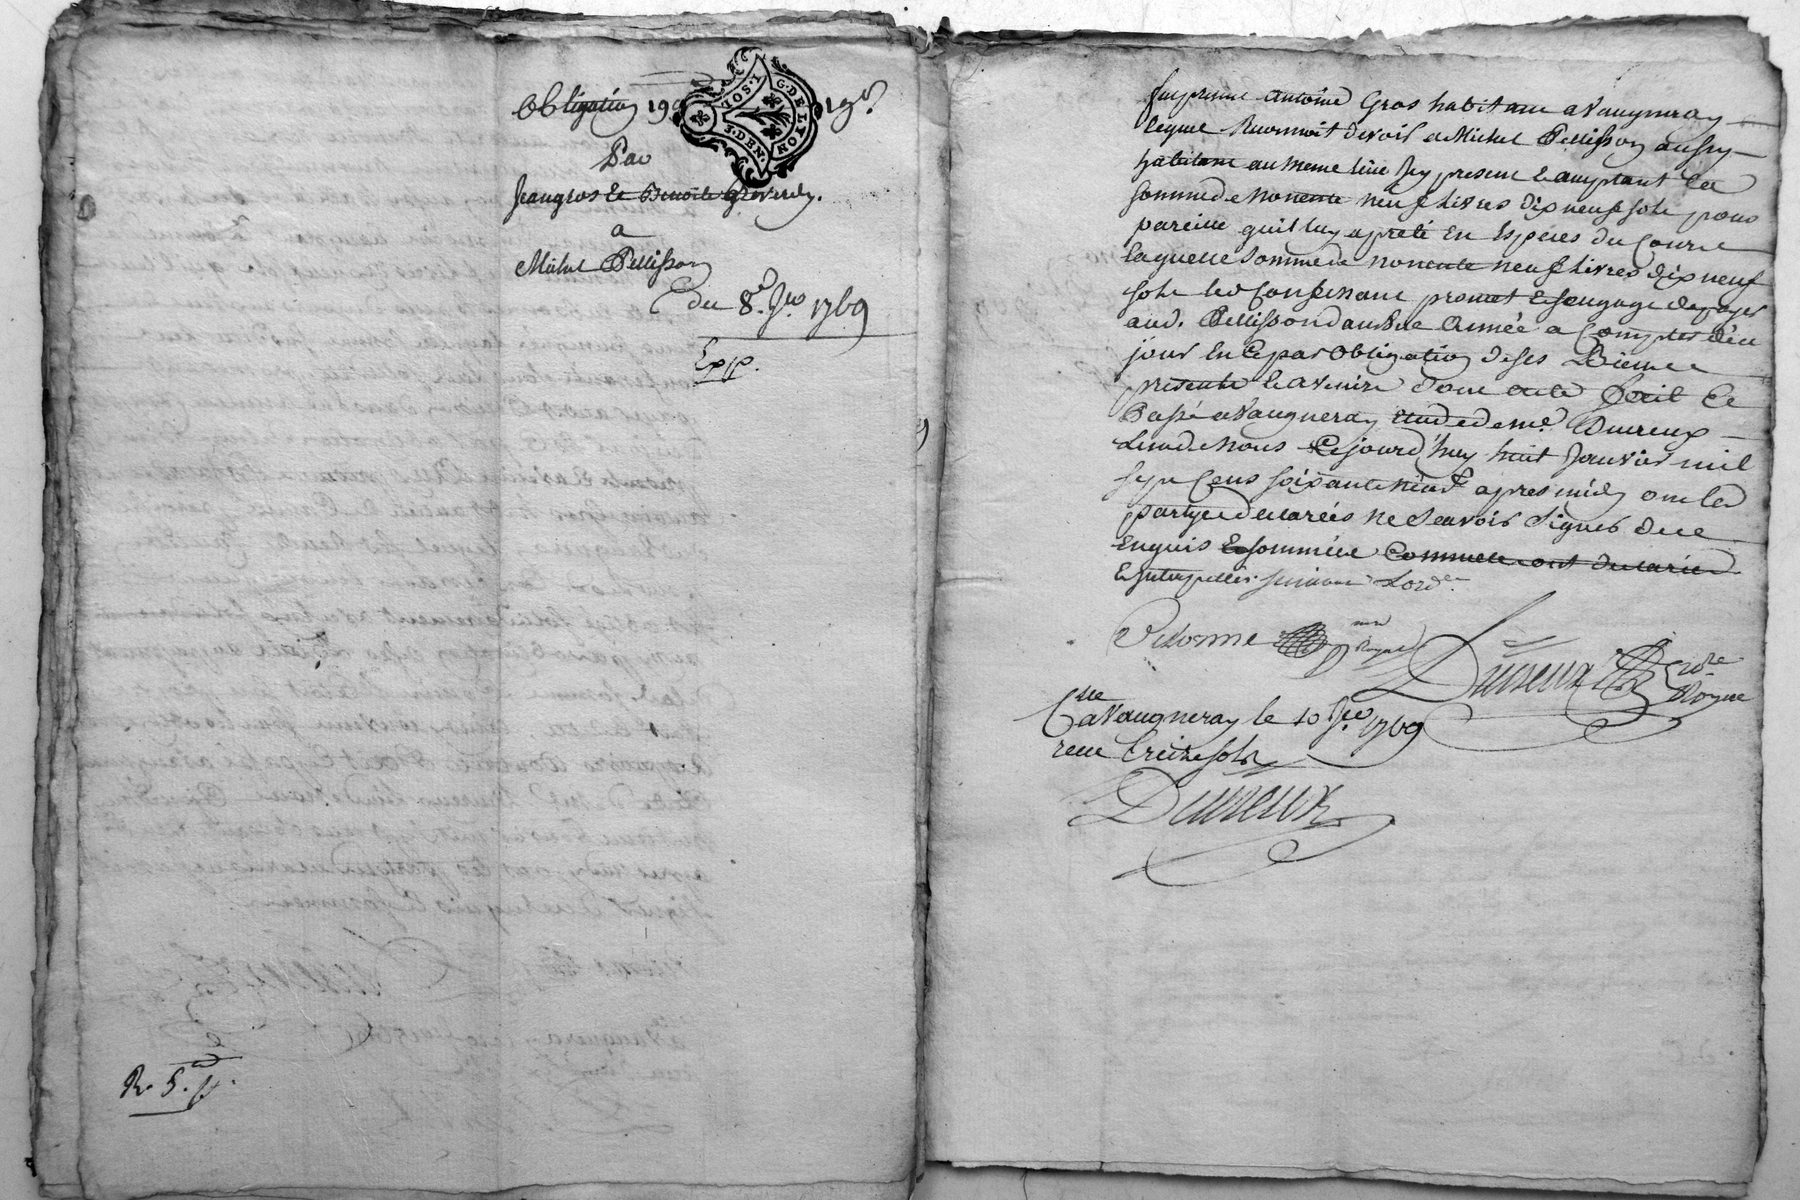 Obligation 19
1 SOL. G. DE LYON 4 DEN.
Par
Jean gros et Benoite
a
Michel Pellisson
du 8e Jer 1769
Exp.
R. 5. s.
fut present Antoine Gros habitant a Vaugneray
lequel devoir a Michel Pellisson aussy
habitant au meme lieu Icy present Et acceptant la
somme de nonente neuf Livres dix neuf sols pour
pareille quil luy a preté En Espèces du Cours
laquelle somme de nonente neuf Livres dix neuf
sols led Confessant promet Et sengage de payer
aud. Pellisson dans une Année a Compter de ce
jour En Ce par obligation de ses Biens
presents Et avenirs donc acte fait Et
Passé a Vaugneray Etude de me. Duireux
Lun de Nous Ce jourd'huy huit Janvier mil
sept Cens soixante neuf apres midy ont les
partyes declarées ne Scavoir Signer de ce
Enquis Et sommées
Et Interpellés suivant Lordce.
Delorme Royal Duireux
Royal
Clle a Vaugneray le 10 Jer 1769
recu treize sols
Duireux